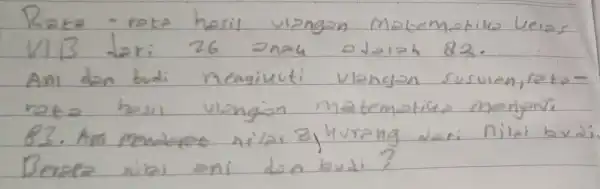 Rata - rata hasil ulangan matematika kelas
VIB dari 26 anak adalah 82.
Ani dan budi mengikuti ulangan susulan, rata-
rata hasil ulangan matematika menjadi
83. Ani nilai 8, kurang dari nilai budi.
Berapa nilai ani dan budi?